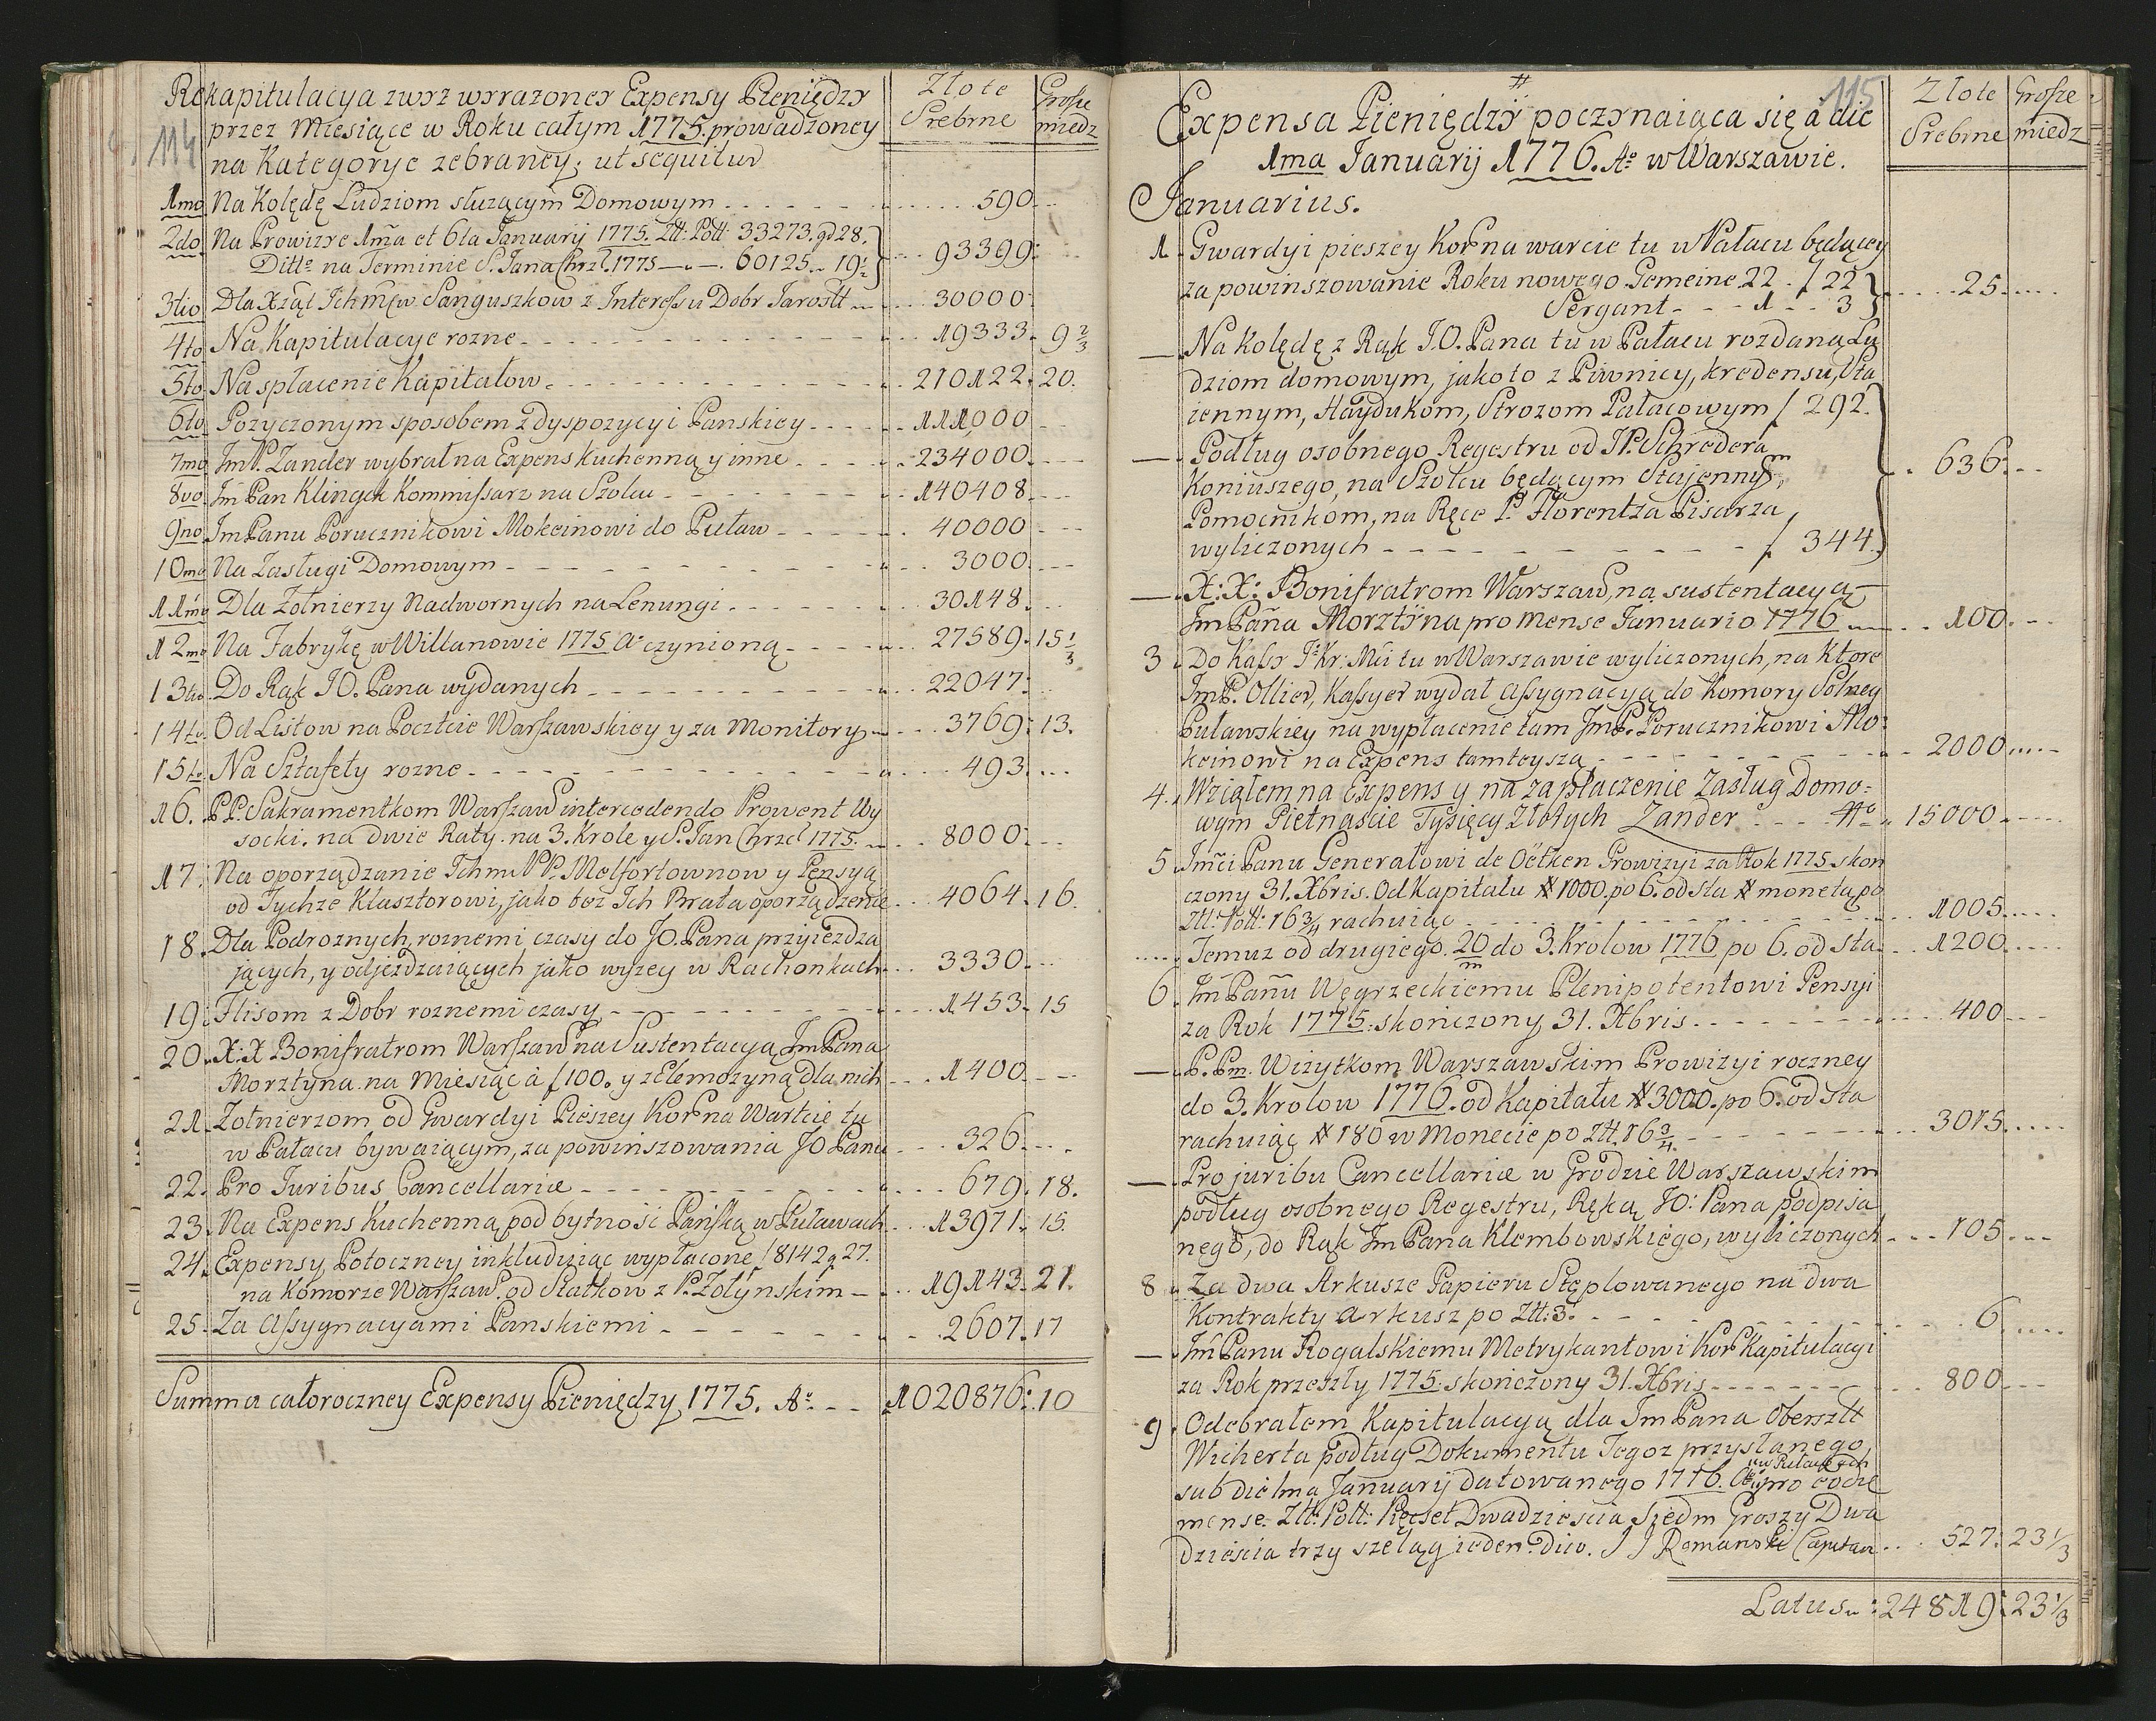 114
Rekapitulacya zwyz wyrazoney Expensy Pieniędzy
przez Miesiące w Roku całym 1775. prowadzoney
na Kategorye zebraney, ut sequitur
Złote Srebrne
Grosze miedz
1mo Na Kolędę Ludziom służącym Domowym 590
2do Na Prowizye 1ma et 6ta Januarij 1775. Ztt: Poll: 33273. gd 28.
Ditto na Terminie S. Jana Chrzl. 1775 60125. 19½ 93399:
3tio Dla Xżąt Ichmćiw Sanguszkow z Interessu Dobr Jarosłt 30000
4to Na Kapitulacye rozne 19333. 9 2/3
5to Na spłacenie Kapitałow 210122. 20.
6to Pozyczonym sposobem z dyspozycyi Panskiey 111,000
7mo Im P. Zander wybrał na Expens kuchenną y inne 234000
8vo Im Pan Klingck Kommissarz na Szolcu 140408
9no Im Panu Porucznikowi Mokcinowi do Puław 40000
10mo Na Zasługi Domowym 3000
11mo Dla Zołnierzy Nadwornych na Lenungi 30148
12mo Na Fabrykę w Willanowie 1775 Ao czynioną 27589. 15 1/3
13tio Do Rąk JO. Pana wydanych 22047
14to Od Listow na Poczcie Warszawskiey y za Monitory 3769: 13.
15to Na Sztafety rozne 493
16. PP. Sakramentkom Warszaw intercedendo Prowent Wy
socki. na dwie Raty. na 3. Krole y S. Jan Chrzcl 1775. 8000
17. Na oporządzanie Ichm PP. Melfortownow y Pensyą
od Tychze Klasztorowi, jako toż Ich Brata oporządzenie 4064. 16.
18. Dla Podroznych, roznemi czasy do JO. Pana przyieżdza
jących, y odjeżdzaiących jako wyzey w Rachonkach 3330
19. Flisom z Dobr roznemi czasy 1453. 15
20. X: X Bonifratrom Warszaw na Sustentacyą Im Pana
Morztyna na Miesiąc à f 100. y z Elemozyną dla nich 1400
21. Zołnierzom od Gwardyi Pieszey Kor na Warcie tu
w Pałacu bywaiącym, za powinszowania JO Panu 326
22. Pro Juribus Cancellariæ 679. 18.
23. Na Expens Kuchenną pod bytnosć Pańską w Puławach 13971. 15
24. Expensy Potoczney inkluduiąc wypłacone f 8142 g 27.
na Komorze Warszaw. od Statkow z P. Zołynskim 19143. 21.
25. Za Assygnacyami Panskiemi 2607. 17
Summa całoroczney Expensy Pieniędzy 1775. Ao 1020876: 10
115
Expensa Pieniędzy poczynaiąca się à die
1ma Januarij 1776. Ao w Warszawie.
Złote Srebrne
Grosze miedz
Januarius.
1. Gwardyi pieszey Kor na warcie tu w Pałacu będącey
za powinszowanie Roku nowego. Gemeine 22 f 22
Sergant 1 3 25
Na Kolędę z Rąk J.O. Pana tu w Pałacu rozdaną Lu
dziom domowym, jako to z Piwnicy, kredensu, Sta
iennym, Haydukom, Strozom Pałacowym f 292.
Podług osobnego Regestru od JP. Schredera
Koniuszego, na Szolcu będącym Stajennym,
Pomocnikom, na Ręce P. Florentza Pisarza
wyliczonych f 344. 636
X: X: Bonifratrom Warszaw, na sustentacyą
Im Pana Morztyna pro Mense Januario 1776 100
3. Do Kassy J. Kr: Mći tu w Warszawie wyliczonych, na ktore
Im P. Ollier, Kassyer wydał Assygnacyą do Komory Solney
Puławskiey na wypłacenie tam Im P. Porucznikowi Mo:
kcinowi na Expens tamteyszą 2000
4. Wziąłem na Expens y na zapłaczenie Zasług Domo:
wym Piętnaście Tysięcy Złotych Zander 15000
5. Imći Panu Generałowi de Oetken Prowizyi za Rok 1775 skon
czony 31. Xbris. Od Kapitału # 1000. po 6. od sta # monetą po
Ztt: Poll: 16 3/4 rachuiąc 1005
Temuz od drugiego 20/m do 3. Krolow 1776 po 6. od sta 1200
6. Im Panu Węgrzeckiemu Plenipotentowi Pensyi
za Rok 1775. skończony 31. Xbris 400
P. Pm. Wizytkom Warszawskim Prowizyi roczney
do 3. Krolow 1776. od Kapitału # 3000. po 6. od sta
rachuiąc # 180 w Monecie po Ztt. 16 3/4 3015
Pro juribu Cancellariæ w Grodzie Warszawskim
podług osobnego Regestru, Ręką JO: Pana podpisa
nego, do Rąk Im Pana Klembowskiego, wyliczonych 105
8. Za dwa Arkusze Papieru Stęplowanego na dwa
Kontrakty Arkusz po Ztt: 3. 6
Im Panu Rogalskiemu Metrykantowi Kor Kapitulacyi
za Rok przeszły 1775. skończony 31. Xbris 800
9. Odebrałem Kapitulacyą dla Im Pana Obersztt
Wicherta podług Dokumentu Tegoz przysłanego,
sub die 1ma Januarij datowanego 1776. w Puławach pro eode
mense. Ztt: Poll: Pięcset Dwadziescia Siedm Groszy Dwa
dziescia trzy szeląg ieden. dico. J J Romanski Capitan 527. 23 1/3
Latus 24819: 23 1/3